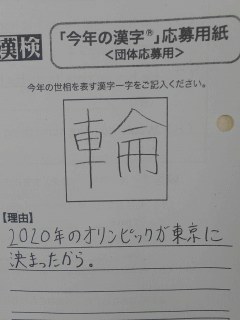 漢検
「今年の漢字®」応募用紙
<団体応募用>
今年の世相を表す漢字一字をご記入ください。
輪
【理由】
2020年のオリンピックが東京に
決まったから。